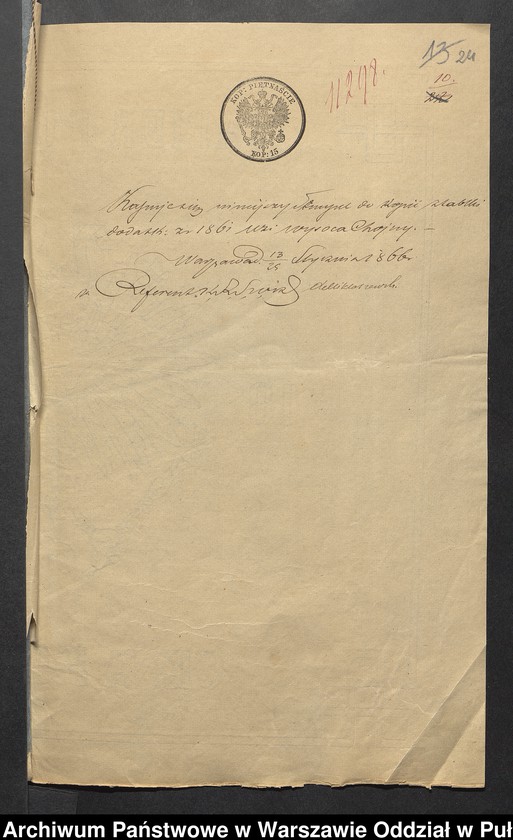 13 24
11298.
10.
KOP: PIĘTNAŚCIE
KOP: 15
niniejszy Stempel do kopii z tabelli
dodatk: zr 1861 Wsi wysoca Chojny. —
Warszawa d. 13/25 Stycznia 1866 r
Referent
Archiwum Państwowe w Warszawie Oddział w Puł